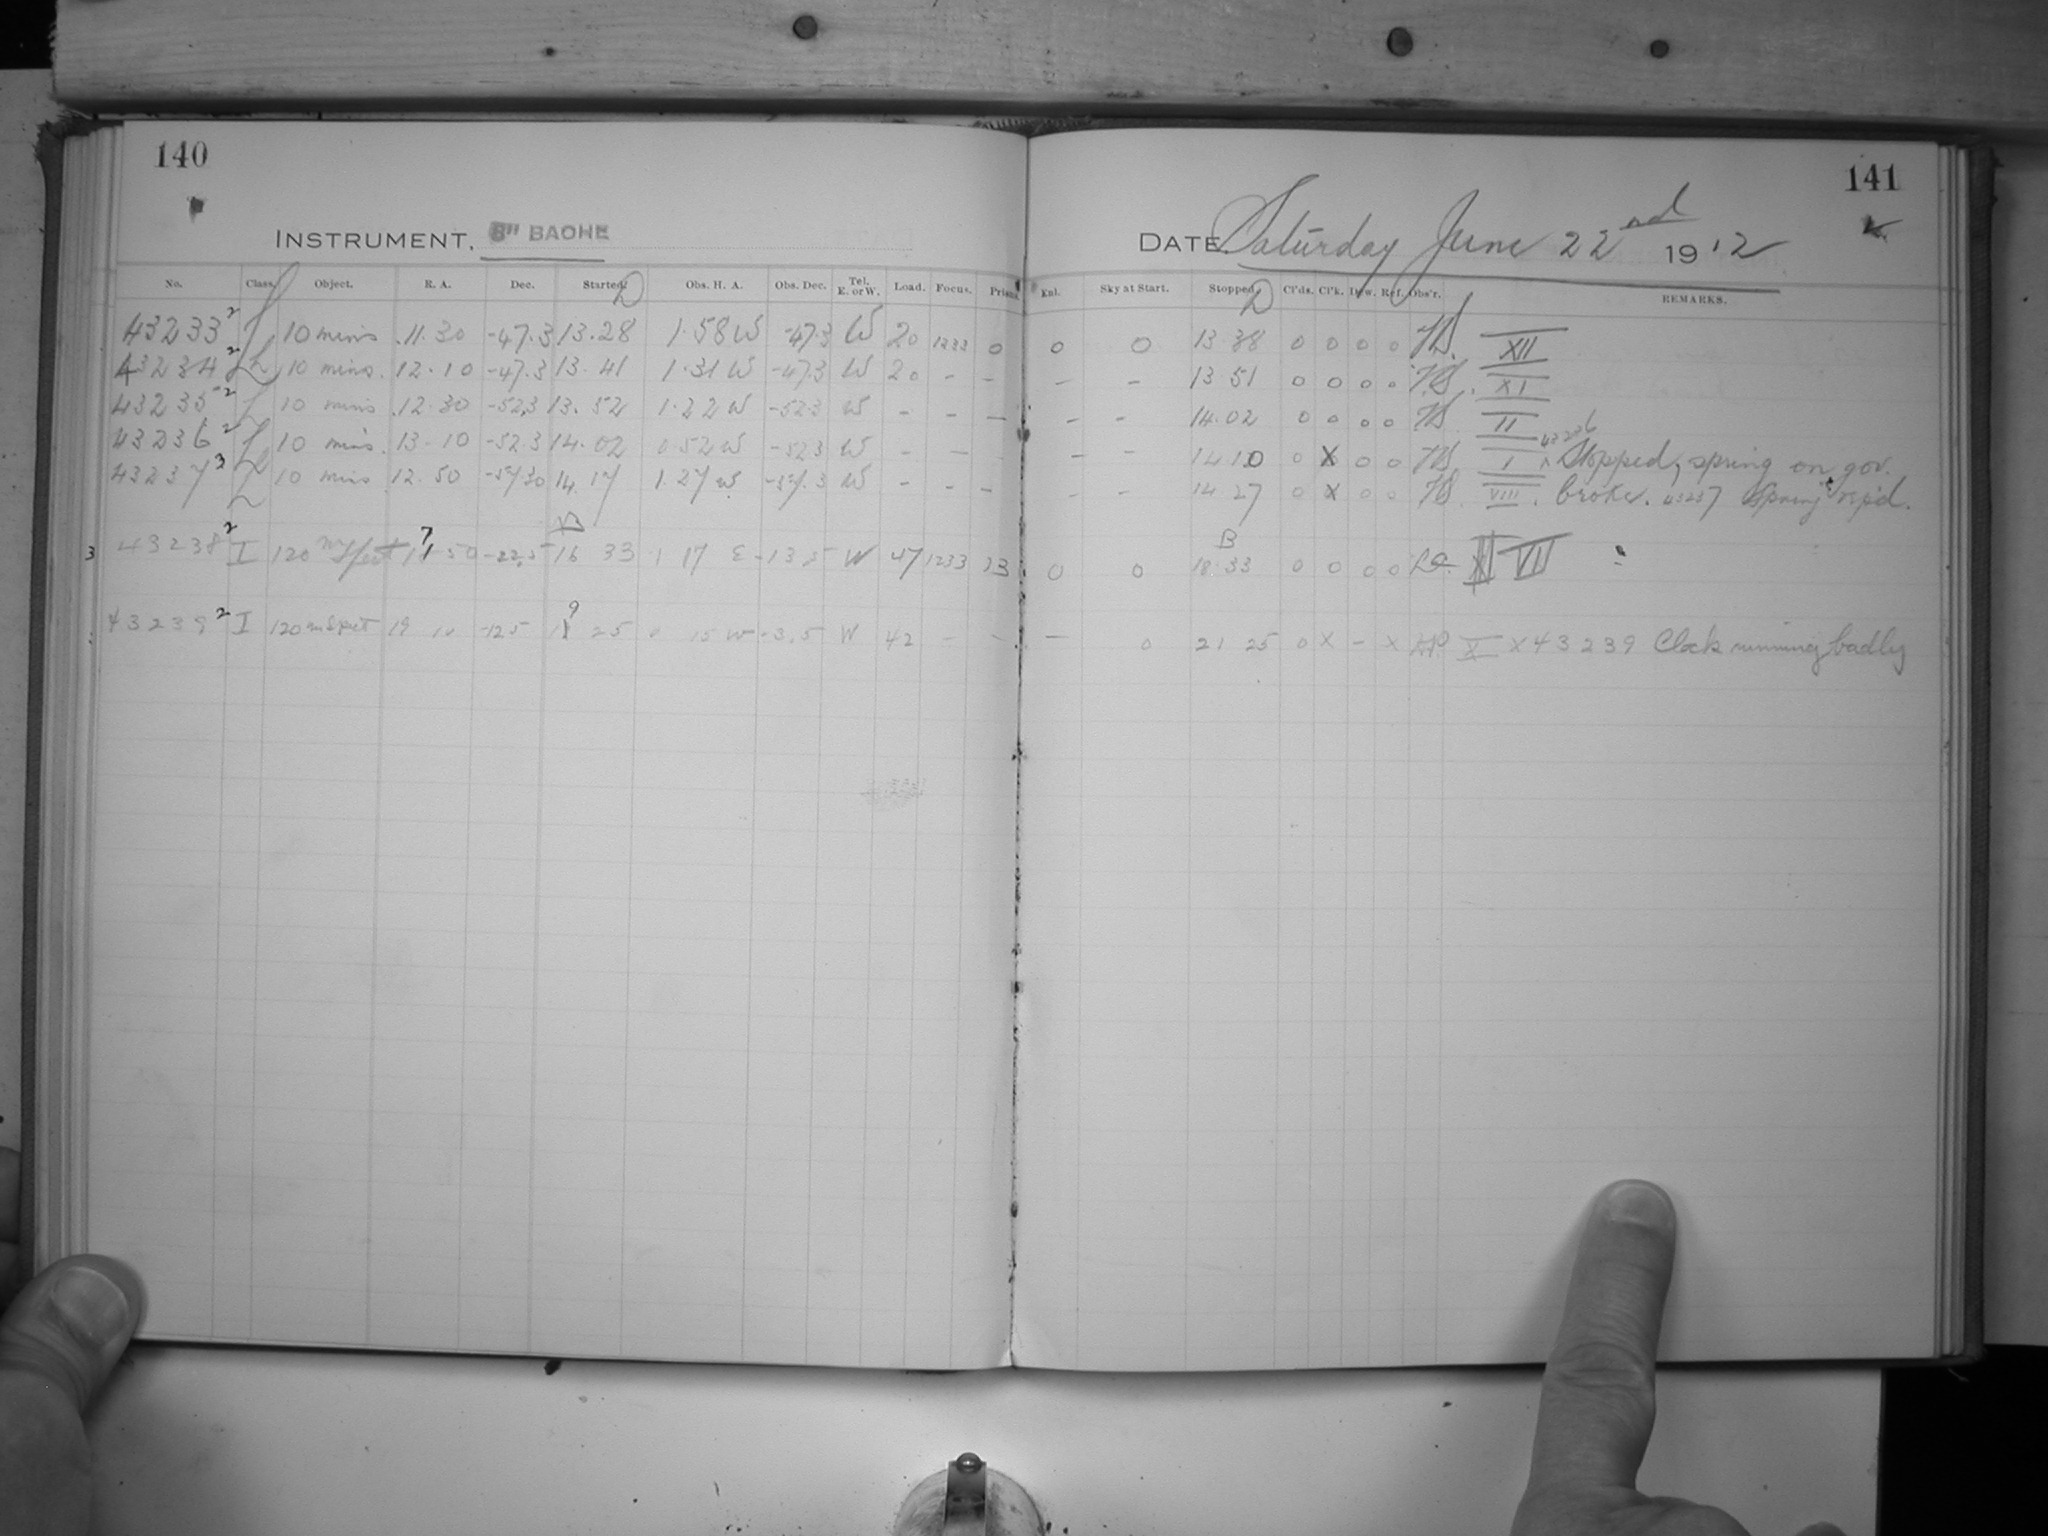 140
141
INSTRUMENT, 8" BACHE
DATE Saturday June 22nd 1912
No. Class. Object. R. A. Dec. Started. Obs. H. A. Obs. Dec. Tel. E. or W. Load. Focus. Prisms. Enl. Sky at Start. Stopped. Cl'ds. Cl'k. Dew. Ref. Obs'r. REMARKS.
D D
43233 2 L 10 mins 11.30 -47.3 13.28 1.58 W -47.3 W 20 1233 0 0 0 13 38 0 0 0 0 XII
43234 2 L 10 mins. 12.10 -47.3 13.41 1.31 W -47.3 W 20 - - - - 13 51 0 0 0 0 XI
43235 2 L 10 mins 12.30 -52.3 13.52 1.22 W -52.3 W - - - - - 14.02 0 0 0 0 II
43236 2 L 10 mins. 13.10 -52.3 14.02 0.52 W -52.3 W - - - - - 14 10 0 X 0 0 I x 43236 Stopped, spring on gov.
43237 3 L 10 mins 12.50 -57.30 14.17 1.27 W -57.3 W - - - - - 14 27 0 X 0 0 VIII. broke. 43237 Spring rep'd.
B B
3 43238 2 I 120 m Spect 17 50 -22.5 16 33 1 17 E -13.5 W 47 1233 13 0 0 18.33 0 0 0 0 VII
43239 2 I 120 m Spect 19 10 -12.5 19 25 0 15 W -3.5 W 42 - - - 0 21 25 0 X - X X X 43239 Clock running badly